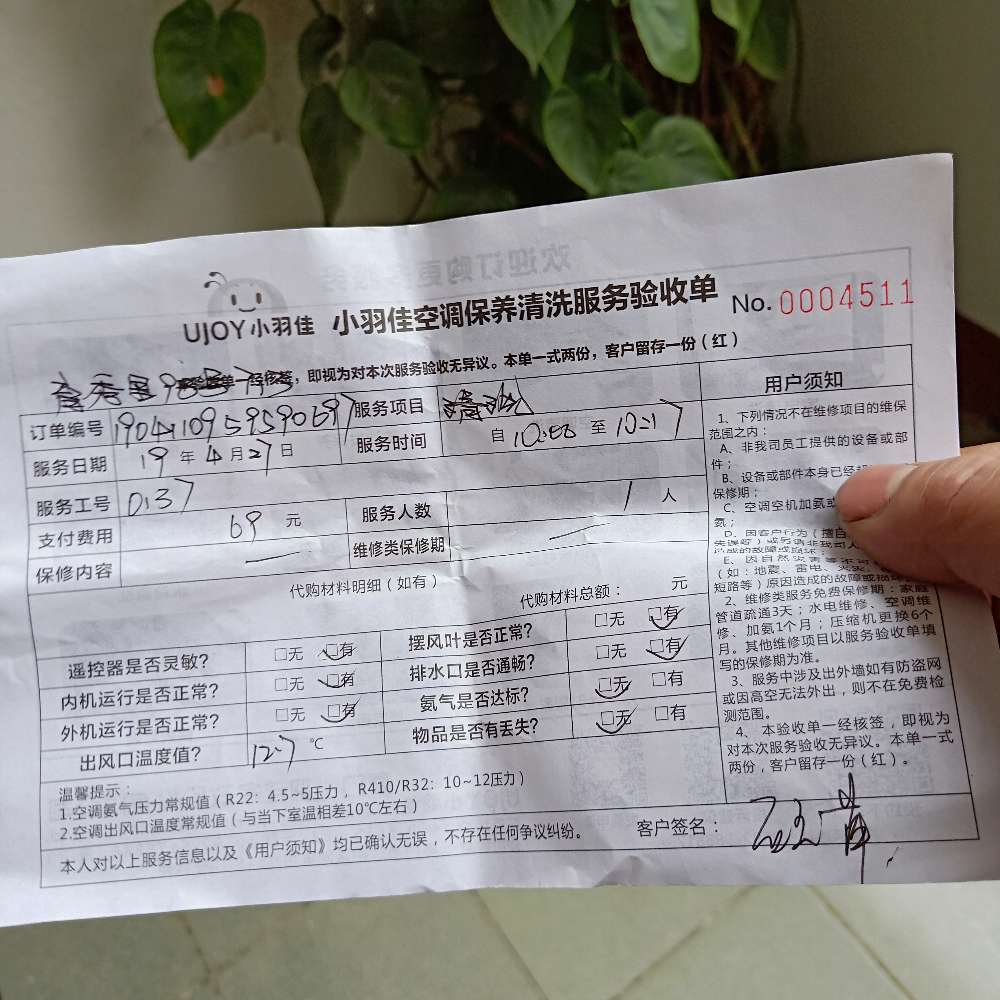 UJOY小羽佳 小羽佳空调保养清洗服务验收单 No. 0004511
，即视为对本次服务验收无异议。本单一式两份，客户留存一份（红）
订单编号 服务项目 清洗
服务日期 19 年 4 月 27 日 服务时间 自 10:00 至 10:17
服务工号 037
支付费用 69 元 服务人数 1 人
保修内容 维修类保修期
代购材料明细（如有）
代购材料总额： 元
遥控器是否灵敏? □无 □有 摆风叶是否正常? □无 □有
内机运行是否正常? □无 □有 排水口是否通畅? □无 □有
外机运行是否正常? □无 □有 氨气是否达标? □无 □有
出风口温度值? 12.7 ℃ 物品是否有丢失? □无 □有
温馨提示：
1.空调氨气压力常规值（R22：4.5~5压力，R410/R32：10~12压力）
2.空调出风口温度常规值（与当下室温相差10℃左右）
本人对以上服务信息以及《用户须知》均已确认无误，不存在任何争议纠纷。 客户签名：
用户须知
1、下列情况不在维修项目的维保
范围之内：
A、非我司员工提供的设备或部
件；
B、设备或部件本身已经
保修期；
C、空调空机加氨或
氨；
D、因客户行为（擅自
E、因自然灾害等不可
（如：地震、雷电、
短路等）原因造成的故障或损坏
2、维修类服务免费保修期：家庭
管道疏通3天；水电维修、空调维
修、加氨1个月；压缩机更换6个
月。其他维修项目以服务验收单填
写的保修期为准。
3、服务中涉及出外墙如有防盗网
或因高空无法外出，则不在免费检
测范围。
4、本验收单一经核签，即视为
对本次服务验收无异议。本单一式
两份，客户留存一份（红）。